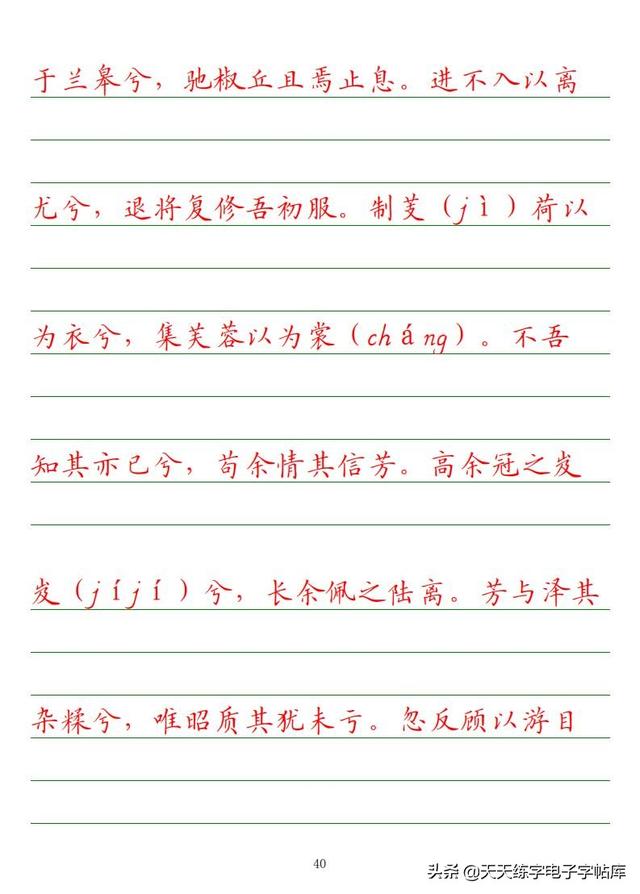 于兰皋兮，驰椒丘且焉止息。进不入以离
尤兮，退将复修吾初服。制芰（jì）荷以
为衣兮，集芙蓉以为裳（cháng）。不吾
知其亦已兮，苟余情其信芳。高余冠之岌
岌（jíjí）兮，长余佩之陆离。芳与泽其
杂糅兮，唯昭质其犹未亏。忽反顾以游目
40
头条 @天天练字电子字帖库